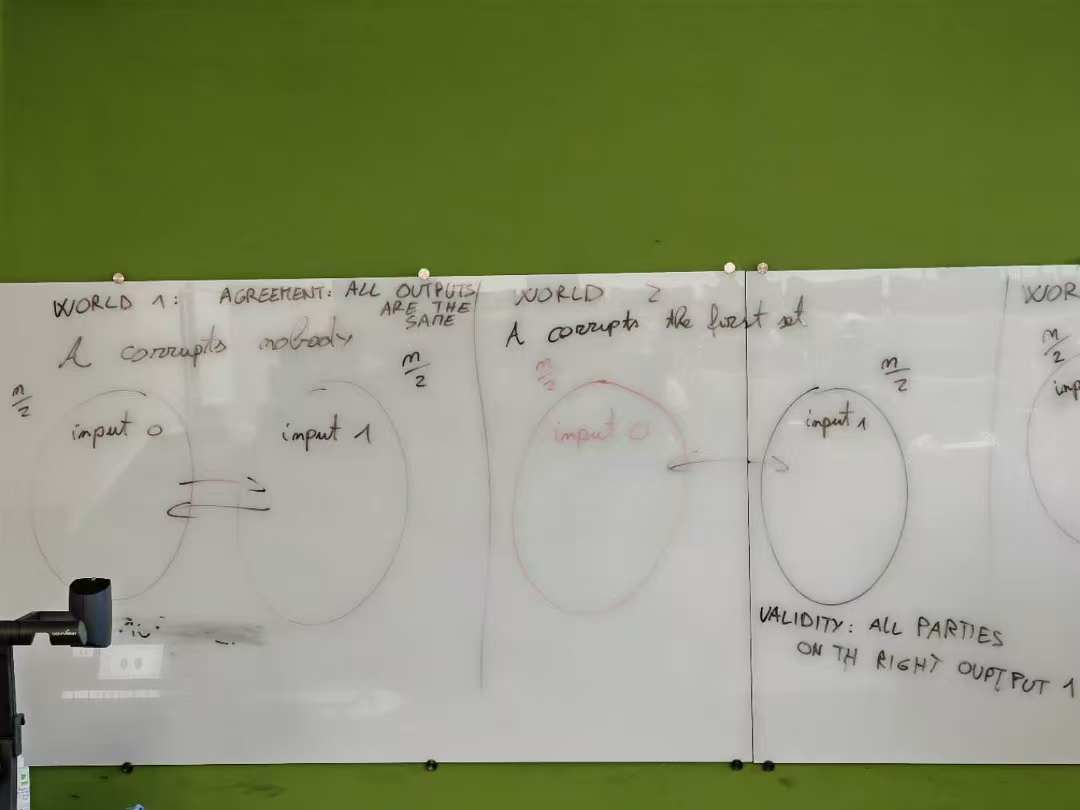 WORLD 1:
AGREEMENT: ALL OUTPUTS
ARE THE
SAME
A corrupts nobody
n/2
input 0
n/2
input 1
WORLD 2
A corrupts the first set
n/2
input 0
n/2
input 1
VALIDITY: ALL PARTIES
ON TH RIGHT OUPTPUT 1
WOR
n/2
inp